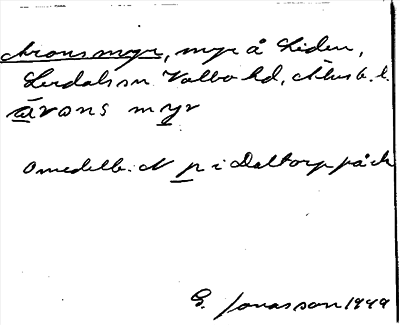 Aronsmyr, myr å Liden,
Lerdals sn Valbo hd, Älvsb. l.
ärons myr
omedelb. N p i Daltorp på k
G. Jonasson 1949